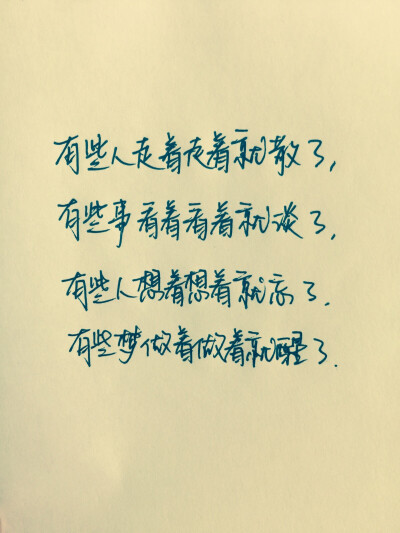 有些人走着走着就散了，
有些事看着看着就淡了，
有些人想着想着就忘了，
有些梦做着做着就醒了.